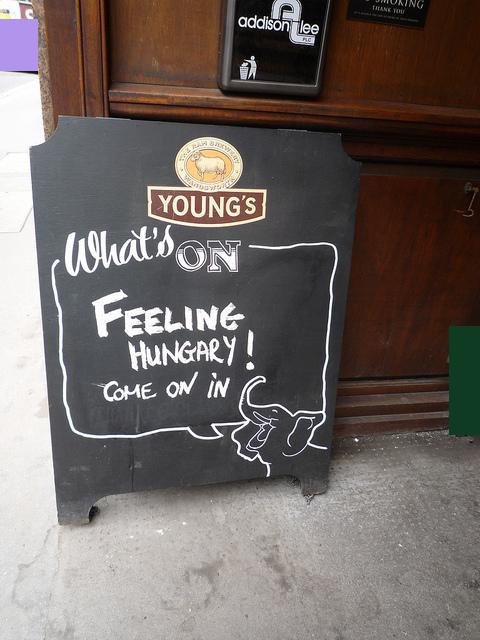 addison lee
PLC
SMOKING
THANK YOU
THE RAM BREWERY
WANDSWORTH
YOUNG'S
What's ON
FEELING
HUNGARY!
COME ON IN